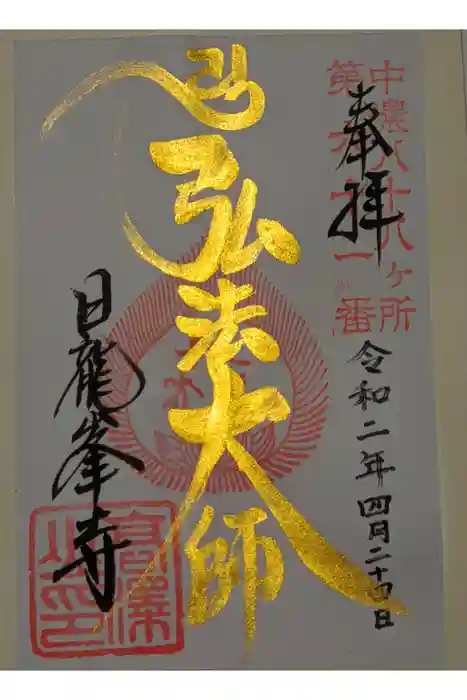 中農八十八ヶ所
第六十一番
奉拝
令和二年四月二十四日
弘法大師
日龍峯寺
高澤山印